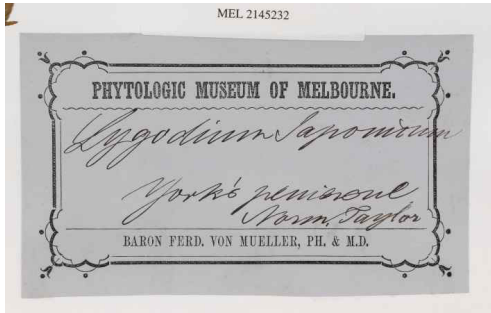 MEL 2145232
PHYTOLOGIC MUSEUM OF MELBOURNE.
Lygodium Japonicum
York's peninsul
Norm. Taylor
BARON FERD. VON MUELLER, PH. & M.D.